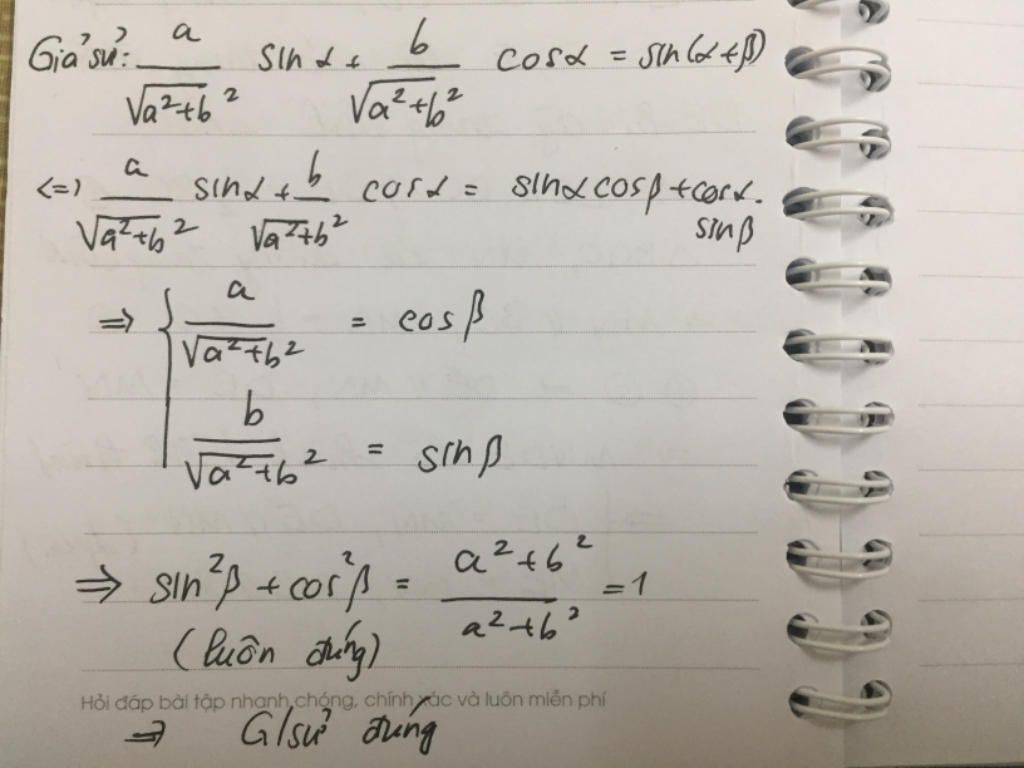 Giả sử: a/√(a²+b²) sinα + b/√(a²+b²) cosα = sin(α+β)
<=> a/√(a²+b²) sinα + b/√(a²+b²) cosα = sinα cosβ + cosα.
sinβ
=> { a/√(a²+b²) = cosβ
b/√(a²+b²) = sinβ
=> sin²β + cos²β = (a²+b²)/(a²+b²) = 1
(luôn đúng)
Hỏi đáp bài tập nhanh chóng, chính xác và luôn miễn phí
=> G/sử đúng